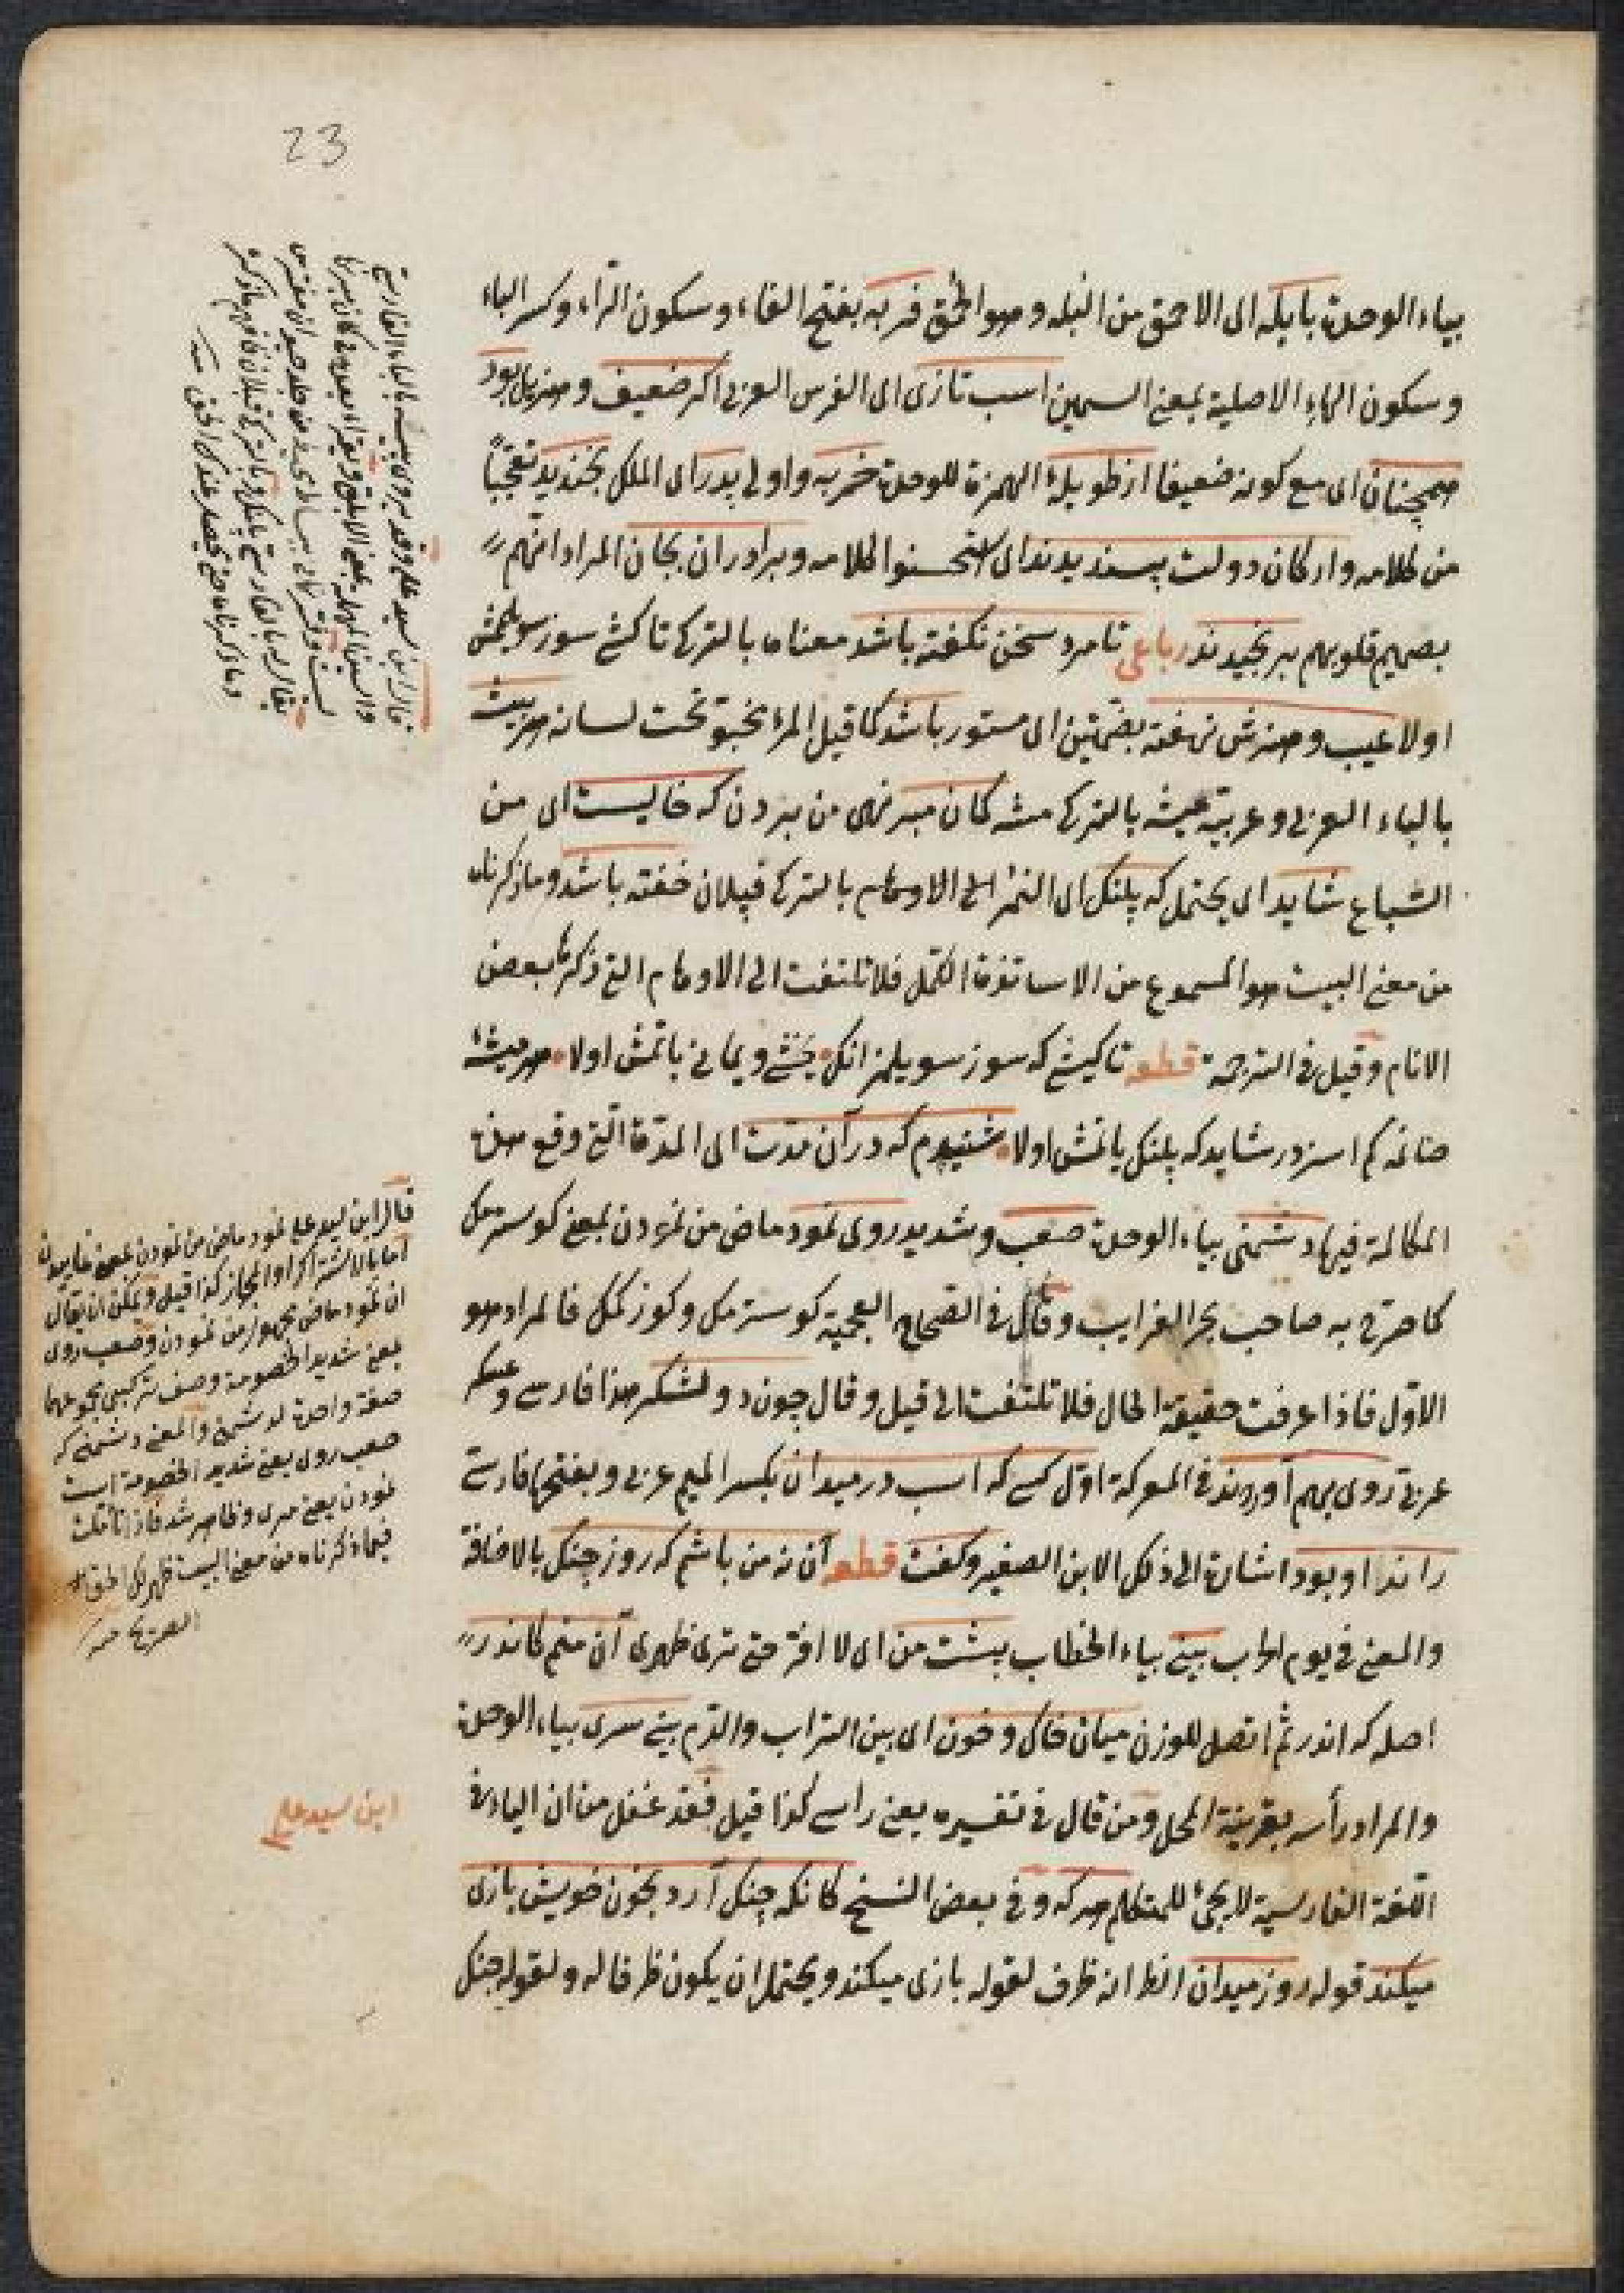 23
بياء الوحدة بابله اى الاحمق من البله وهو الحمق فربه بفتح الفاء وسكون الراء وكسر الباء
وسكون الهاء الاصلية بمعنى السمين اسب تازى اى الفرس العربى اكر ضعيف وهزيل بود
همچنان اى مع كونه ضعيفا از طويلهٔ الهمزة للوحدة خر به واولى پدر اى الملك بخنديد تعجّبًا
من كلامه واركان دولت بپسنديدند اى استحسنوا كلامه وبرادران بجان المراد انهم
بصميم قلوبهم برنجيدند رباعى تا مرد سخن نكفته باشد معناه بالتركى تا كشى سوز سويلمش
اولا عيب وهنرش نهفته بضمّتين اى مستور باشد كما قيل المرء مخبوّ تحت لسانه هر بيشه
بالباء العربى وعربيّه عيشه بالتركى مشه كمان مبر نهى من بردن كه خاليست اى من
السّباع شايد اى يحتمل كه پلنك اى النمر الى الاوهام بالتركى قپلان خفته باشد وما ذكرناه
من معنى البيت هو المسموع من الاساتذة الكمّل فلا تلتفت الى الاوهام التى ذكرها بعض
الانام وقيل فى الترجمة قطعه تا كيشى كه سوز سويلمز انك يخشى ويمانى باتمش اولا هر ميشهٔ
صانمه كم اسزدر شايد كه پلنك ياتمش اولا شنيدم كه در آن مدّت اى المدّة التى وقع هذه
المكالمة فيها دشمنى بياء الوحدة صعب وشديد روى نمود ماض من نمودن بمعنى كوسترمك
كما صرّح به صاحب بحر الغرايب وقال فى الصحاح العجمية كوسترمك وكوزكمك فالمراد هو
الاوّل فاذا عرفت حقيقة الحال فلا تلتفت الى قيل وقال چون دو لشكر هذا فارسى وعسكر
عربى روى بهم آوردند فى المعركة اوّل كسى كه اسب در ميدان بكسر الميم عربى وبفتحها فارسى
راند او بود اشارة الى ذلك الابن الصغير وكفت قطعه آن نه من باشم كه روز جنك بالاضافة
والمعنى فى يوم الحرب بينى بياء الخطاب پشت من اى لا افرّ حتى ترى ظهرى آن منم كاندر
اصله كه اندر ثم اتصل للوزن ميان خاك وخون اى بين التراب والدّم بينى سرى بياء الوحدة
والمراد رأسه بقرينة المحل ومن قال فى تفسيره يعنى راسى كذا قيل فقد غفل من ان الياء فى
اللغة الفارسية لا يجئ للمتكلم هر كه وفى بعض النسخ كانكه جنك آرد بخون خويش بازى
ميكند قوله روز ميدان الظ انه ظرف لقوله بازى ميكند ويحتمل ان يكون ظرفا له ولقوله جنك
قال ابن سيد على نمود ماض من نمودن بمعنى
ان نمود ماض مجهول من نمودن وصعب روى
بمعنى شديد الخصومة وصف تركيبى مجموعهما
صفة واحدة لدشمنى والمعنى دشمنى كه
صعب روى يعنى شديد الخصومة است
نمودن يعنى مرى وظاهر شد فاذا تأملت
فيما ذكرناه من معنى البيت ظهر لك الحق
الصريح منه
ابن سيد على